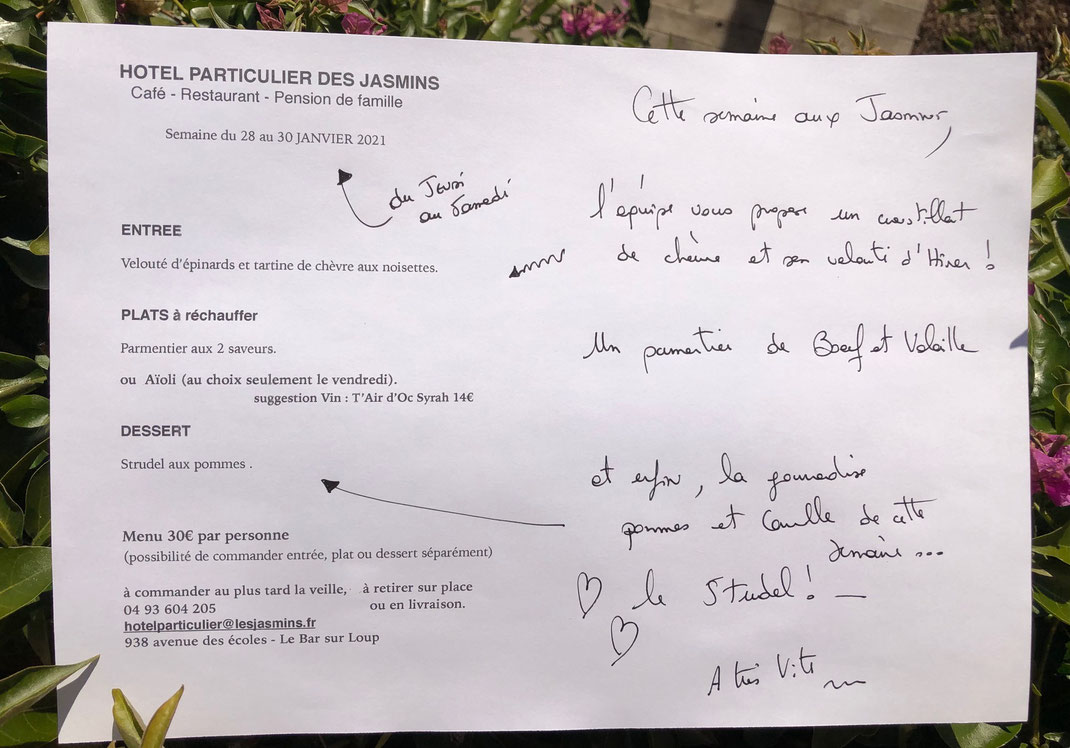 HOTEL PARTICULIER DES JASMINS
Café - Restaurant - Pension de famille
Semaine du 28 au 30 JANVIER 2021
du Jeudi
au Samedi
ENTREE
Velouté d'épinards et tartine de chèvre aux noisettes.
PLATS à réchauffer
Parmentier aux 2 saveurs.
ou Aïoli (au choix seulement le vendredi).
suggestion Vin : T'Air d'Oc Syrah 14€
DESSERT
Strudel aux pommes .
Menu 30€ par personne
(possibilité de commander entrée, plat ou dessert séparément)
à commander au plus tard la veille, à retirer sur place
ou en livraison.
04 93 604 205
hotelparticulier@lesjasmins.fr
938 avenue des écoles - Le Bar sur Loup
Cette semaine aux Jasmins,
l'équipe vous propose un croustillant
de chèvre et son velouté d'Hiver !
Un parmentier de Boeuf et Volaille
et enfin, la gourmandise
pommes et Cannelle de cette
semaine ...
le Strudel ! _
A très Vite